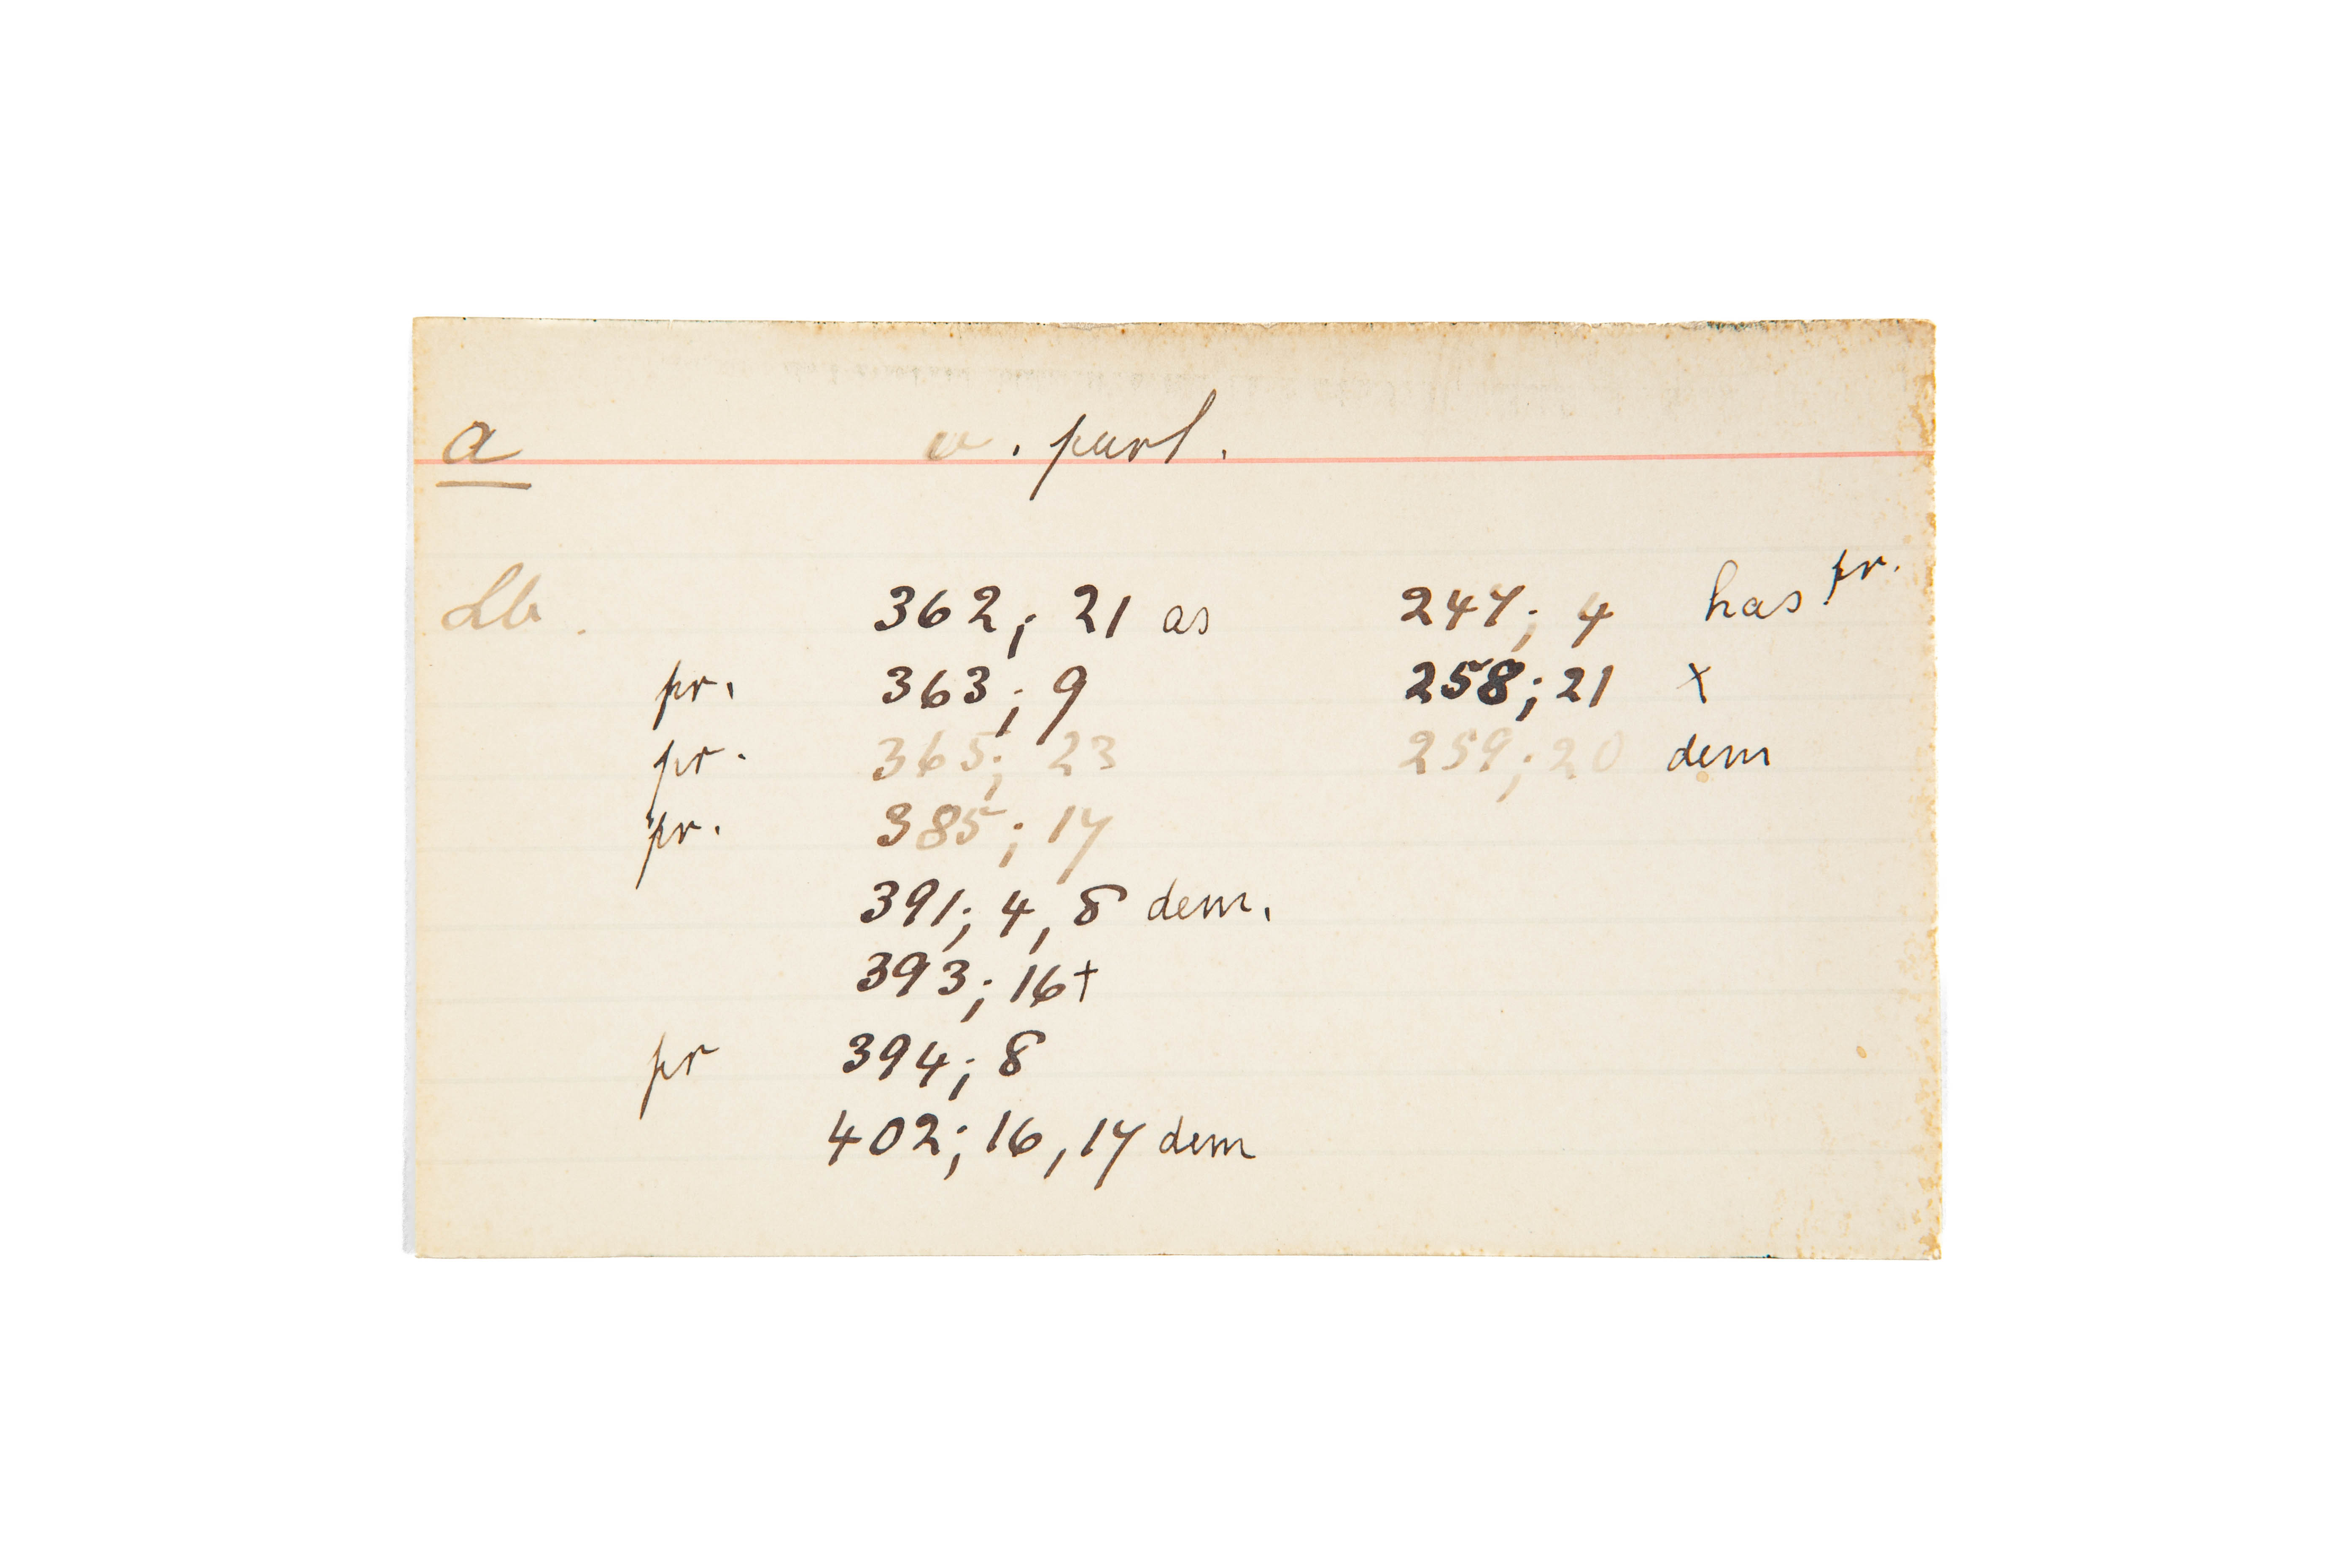 a v. part.
Lb. 362; 21 as 247; 4 has pr.
pr. 363; 9 258; 21 x
pr. 365; 23 259; 20 dem
pr. 385; 17
391; 4, 8 dem.
393; 16+
pr 394; 8
402; 16, 17 dem